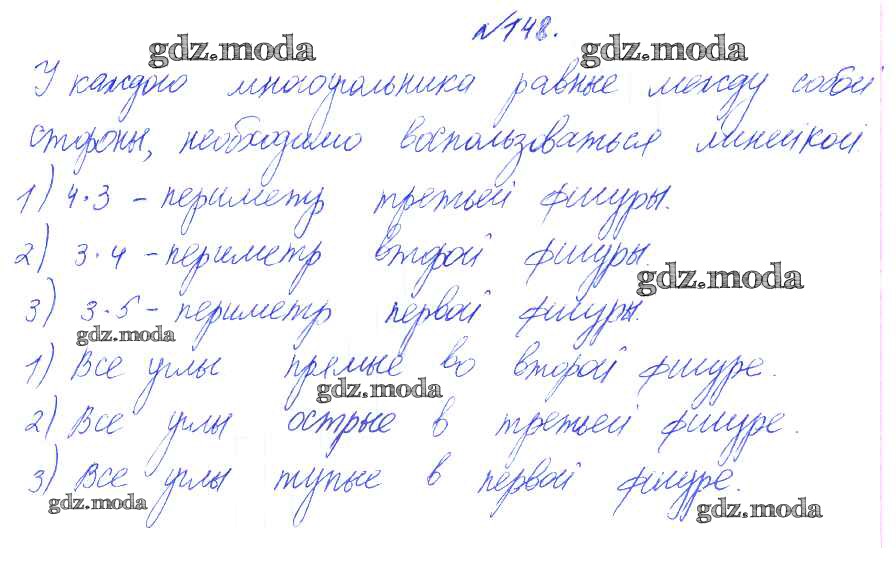 №148.
gdz.moda gdz.moda
У каждого многоугольника равные между собой
стороны, необходимо воспользоваться линейкой
1) 4·3 - периметр третьей фигуры.
2) 3·4 - периметр второй фигуры.
gdz.moda
3) 3·5 - периметр первой фигуры.
gdz.moda
1) Все углы прямые во второй фигуре.
gdz.moda
2) Все углы острые в третьей фигуре.
3) Все углы тупые в первой фигуре.
gdz.moda gdz.moda